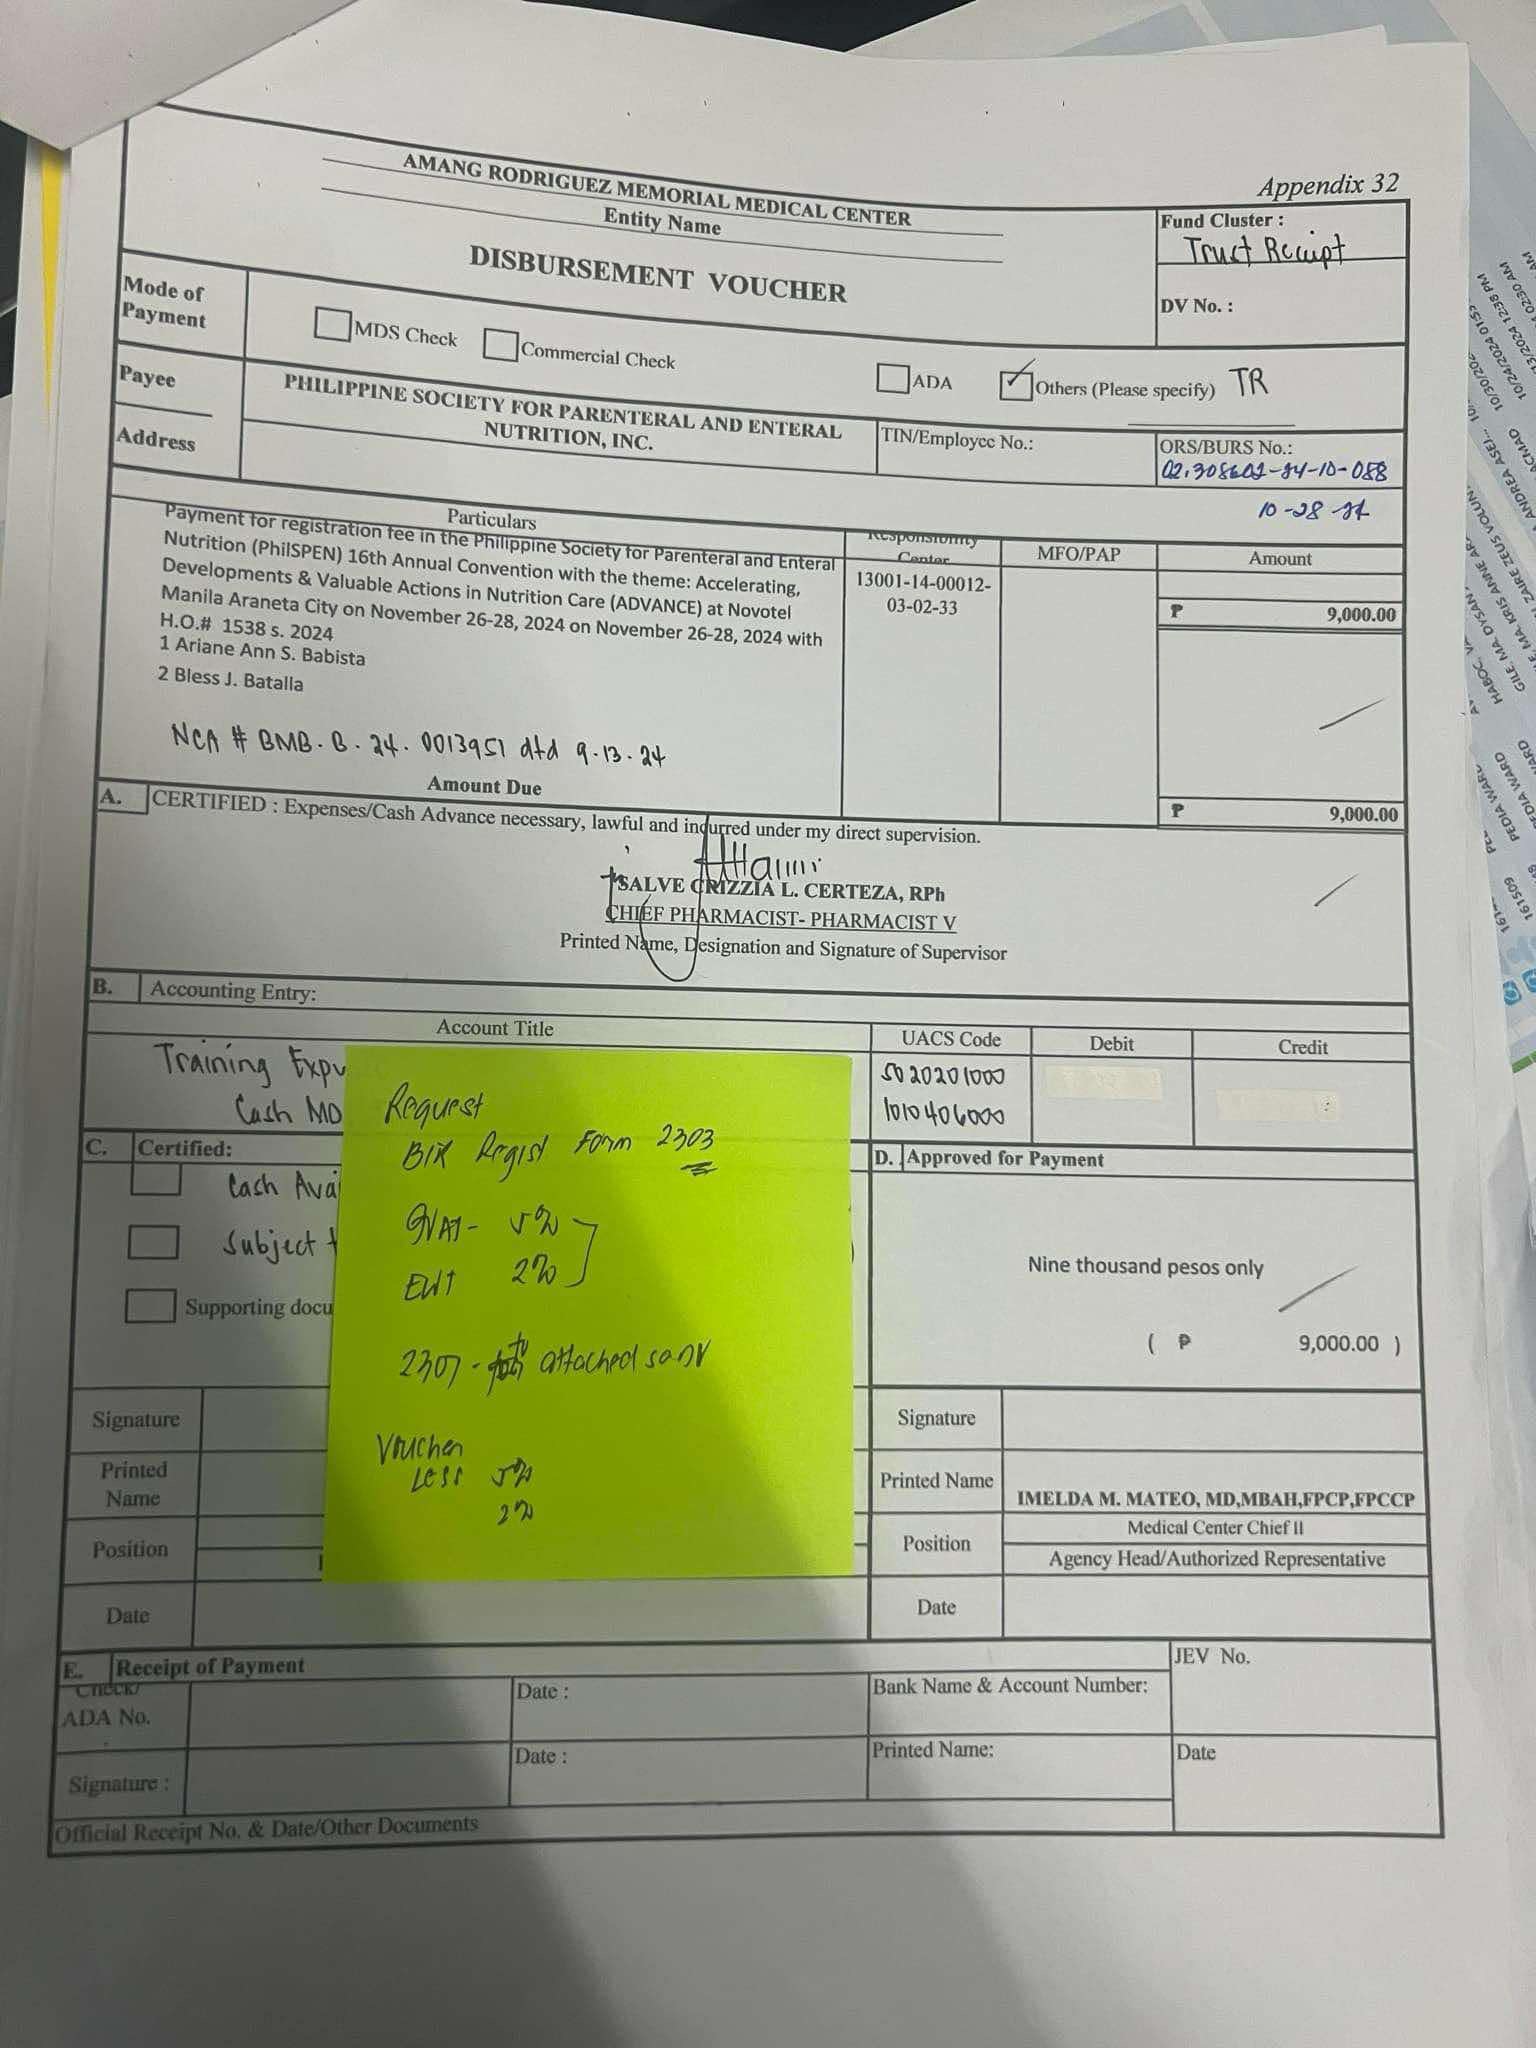 Appendix 32
AMANG RODRIGUEZ MEMORIAL MEDICAL CENTER
Entity Name
DISBURSEMENT VOUCHER
Fund Cluster :
Trust Receipt
DV No. :
Mode of
Payment
MDS Check
Commercial Check
ADA
Others (Please specify) TR
Payee
PHILIPPINE SOCIETY FOR PARENTERAL AND ENTERAL
NUTRITION, INC.
TIN/Employee No.:
ORS/BURS No.:
02.308602-24-10-088
10-28-24
Address
Particulars
Responsibility
Center
MFO/PAP
Amount
Payment for registration fee in the Philippine Society for Parenteral and Enteral
Nutrition (PhilSPEN) 16th Annual Convention with the theme: Accelerating,
Developments & Valuable Actions in Nutrition Care (ADVANCE) at Novotel
Manila Araneta City on November 26-28, 2024 on November 26-28, 2024 with
H.O.# 1538 s. 2024
1 Ariane Ann S. Babista
2 Bless J. Batalla
13001-14-00012-
03-02-33
₱ 9,000.00
NCA # BMB.B.24.0013951 dtd 9.13.24
Amount Due
₱ 9,000.00
A. CERTIFIED : Expenses/Cash Advance necessary, lawful and incurred under my direct supervision.
SALVE CRIZZIA L. CERTEZA, RPh
CHIEF PHARMACIST- PHARMACIST V
Printed Name, Designation and Signature of Supervisor
B. Accounting Entry:
Account Title
UACS Code
Debit
Credit
Training Exp
5020201000
Cash MD
1010406000
C. Certified:
Cash Avai
Subject t
Supporting docu
D. Approved for Payment
Nine thousand pesos only
( ₱ 9,000.00 )
Request
BIR Regist Form 2303
GVAT- 5%
EWT 2%
2307 - to attached sa DV
Voucher
Less 5%
2%
Signature
Printed
Name
Position
Date
Signature
Printed Name
IMELDA M. MATEO, MD,MBAH,FPCP,FPCCP
Position
Medical Center Chief II
Agency Head/Authorized Representative
Date
E. Receipt of Payment
JEV No.
Check/
ADA No.
Date :
Bank Name & Account Number:
Signature :
Date :
Printed Name:
Date
Official Receipt No. & Date/Other Documents